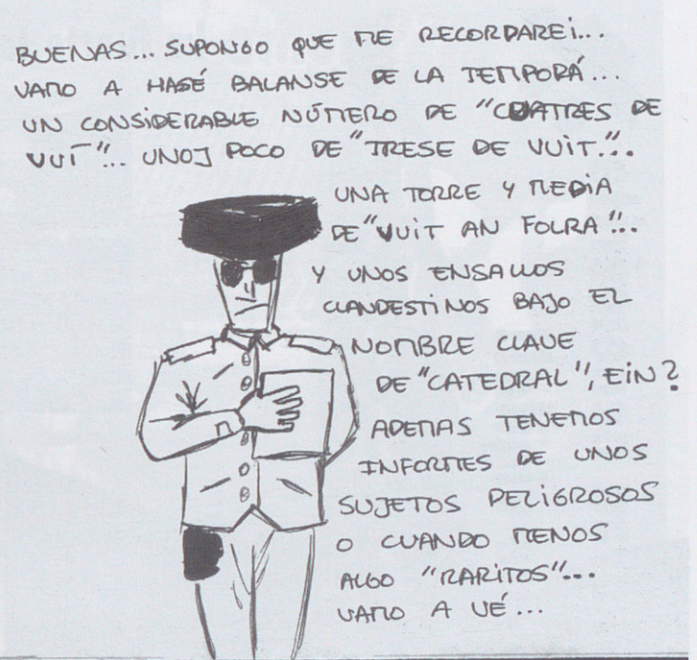 BUENAS... SUPONGO QUE ME RECORDAREi...
VAMO A HASÉ BALANSE DE LA TEMPORÁ...
UN CONSiDERABLE NÚMERO DE "CUATRES DE
VUiT"... UNOJ POCO DE "TRESE DE VUiT."..
UNA TORRE Y MEDiA
DE "VUiT AN FOLRA"...
Y UNOS ENSALLOS
CLANDESTiNOS BAJO EL
NOMBRE CLAVE
DE "CATEDRAL", EiN?
ADEMAS TENEMOS
INFORMES DE UNOS
SUJETOS PELiGROSOS
O CUANDO MENOS
ALGO "RARiTOS"...
VAMO A VÉ...